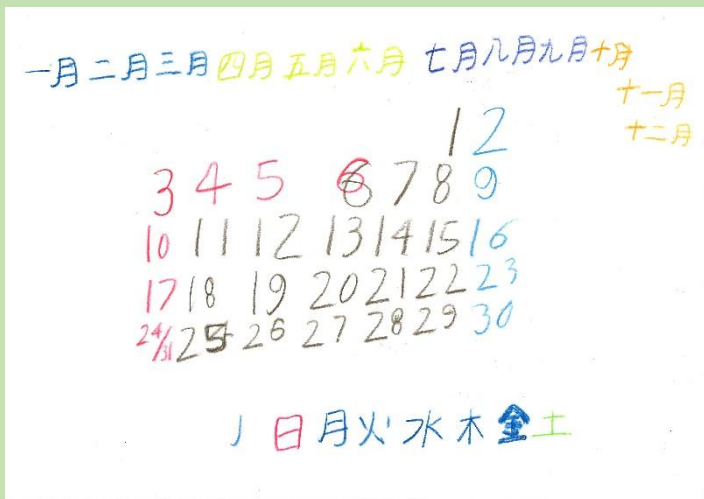 一月二月三月四月五月六月 七月八月九月十月
十一月
十二月
1 2
3 4 5 6 7 8 9
10 11 12 13 14 15 16
17 18 19 20 21 22 23
24/31 25 26 27 28 29 30
日月火水木金土